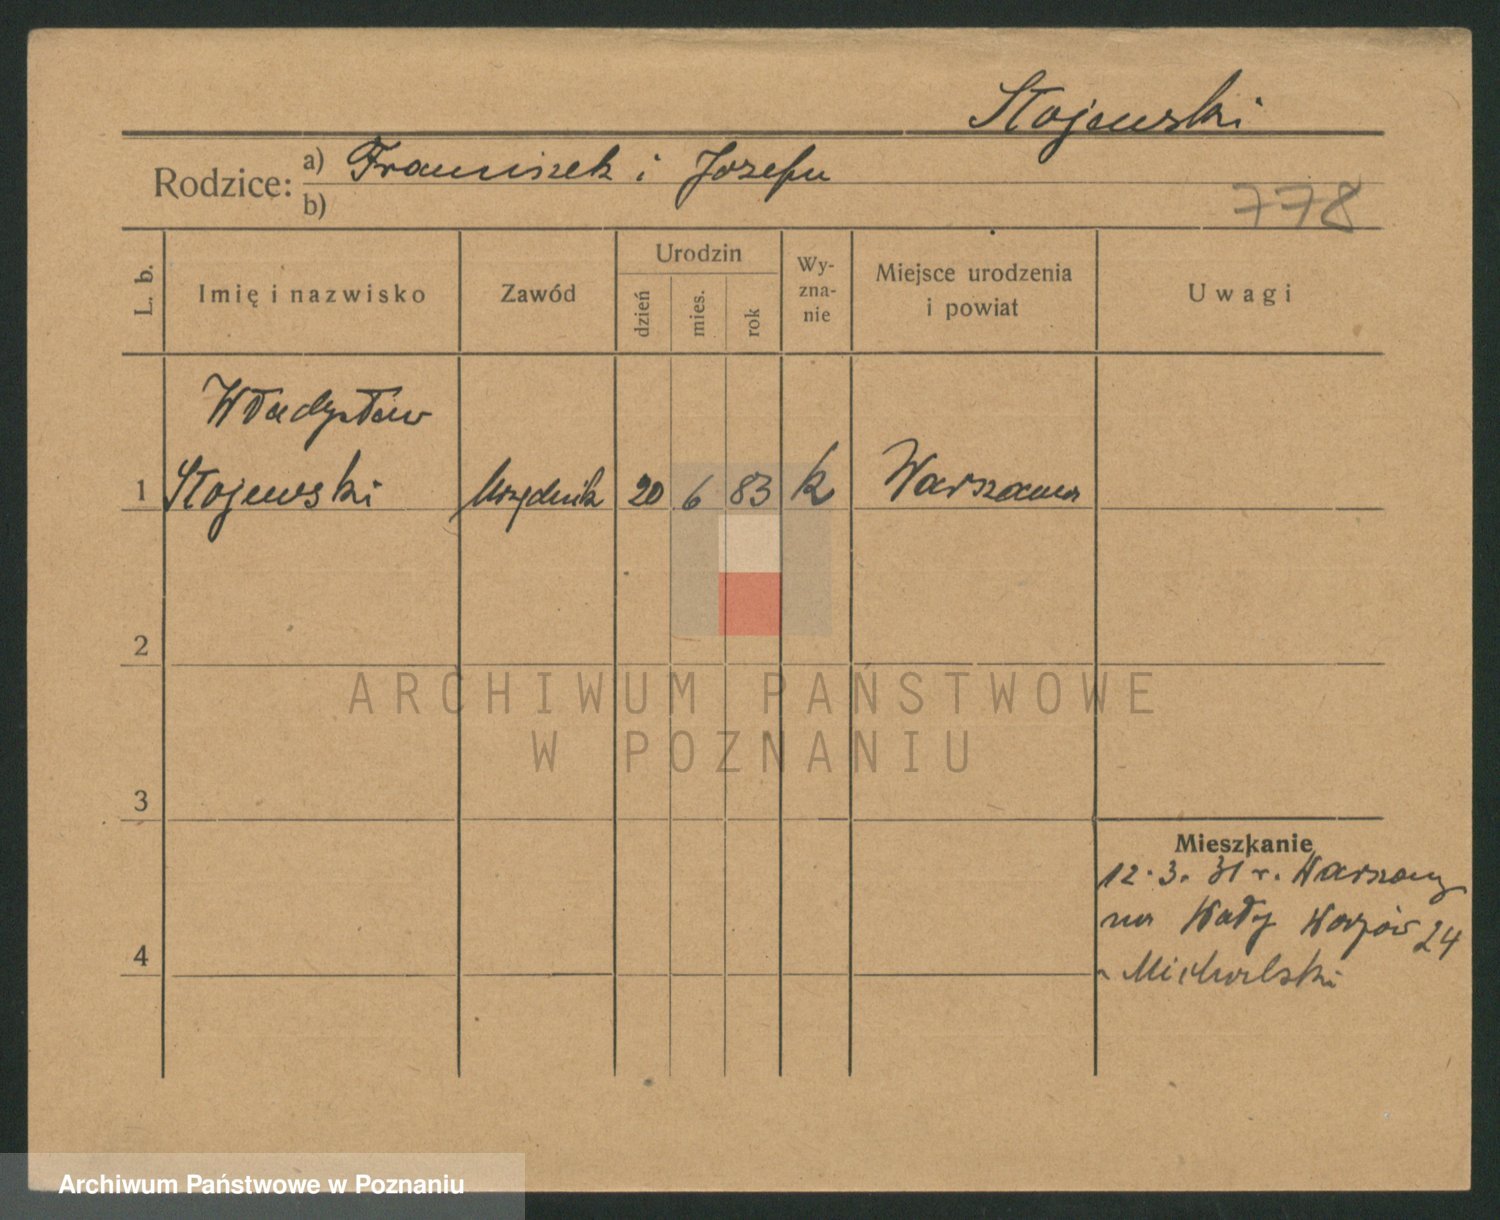 Stojewski
Rodzice: a) Franciszek i Józefa
b)
778
L. b.
Imię i nazwisko
Zawód
Urodzin
dzień
mies.
rok
Wy-
zna-
nie
Miejsce urodzenia
i powiat
Uwagi
Władysław
1 Stojewski Urzędnik 20 6 83 k Warszawa
2
ARCHIWUM PAŃSTWOWE
W POZNANIU
3
Mieszkanie
12.3.31 r. Warszawy
na Wały
24
4
Michalski
Archiwum Państwowe w Poznaniu